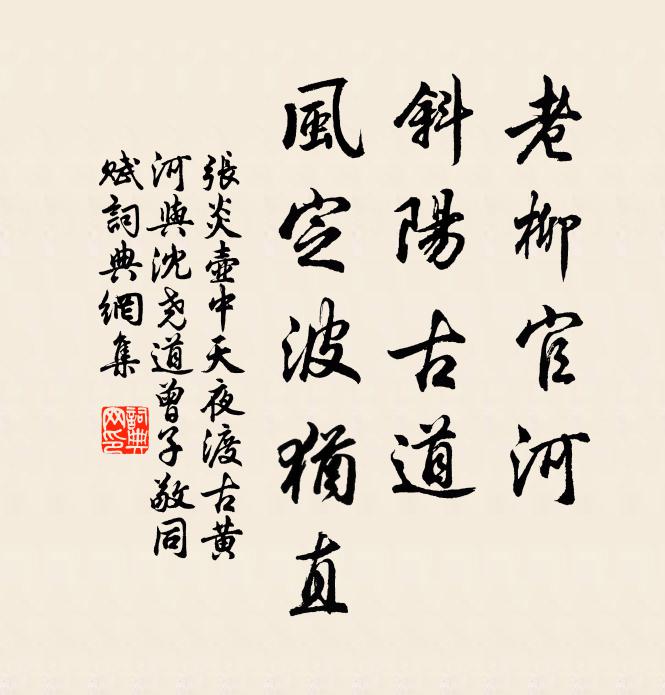 老柳官河
斜陽古道
風定波猶直
張炎壺中天夜渡古黃
河與沈堯道曾子敬同
賦詞典網集
詞典
网印